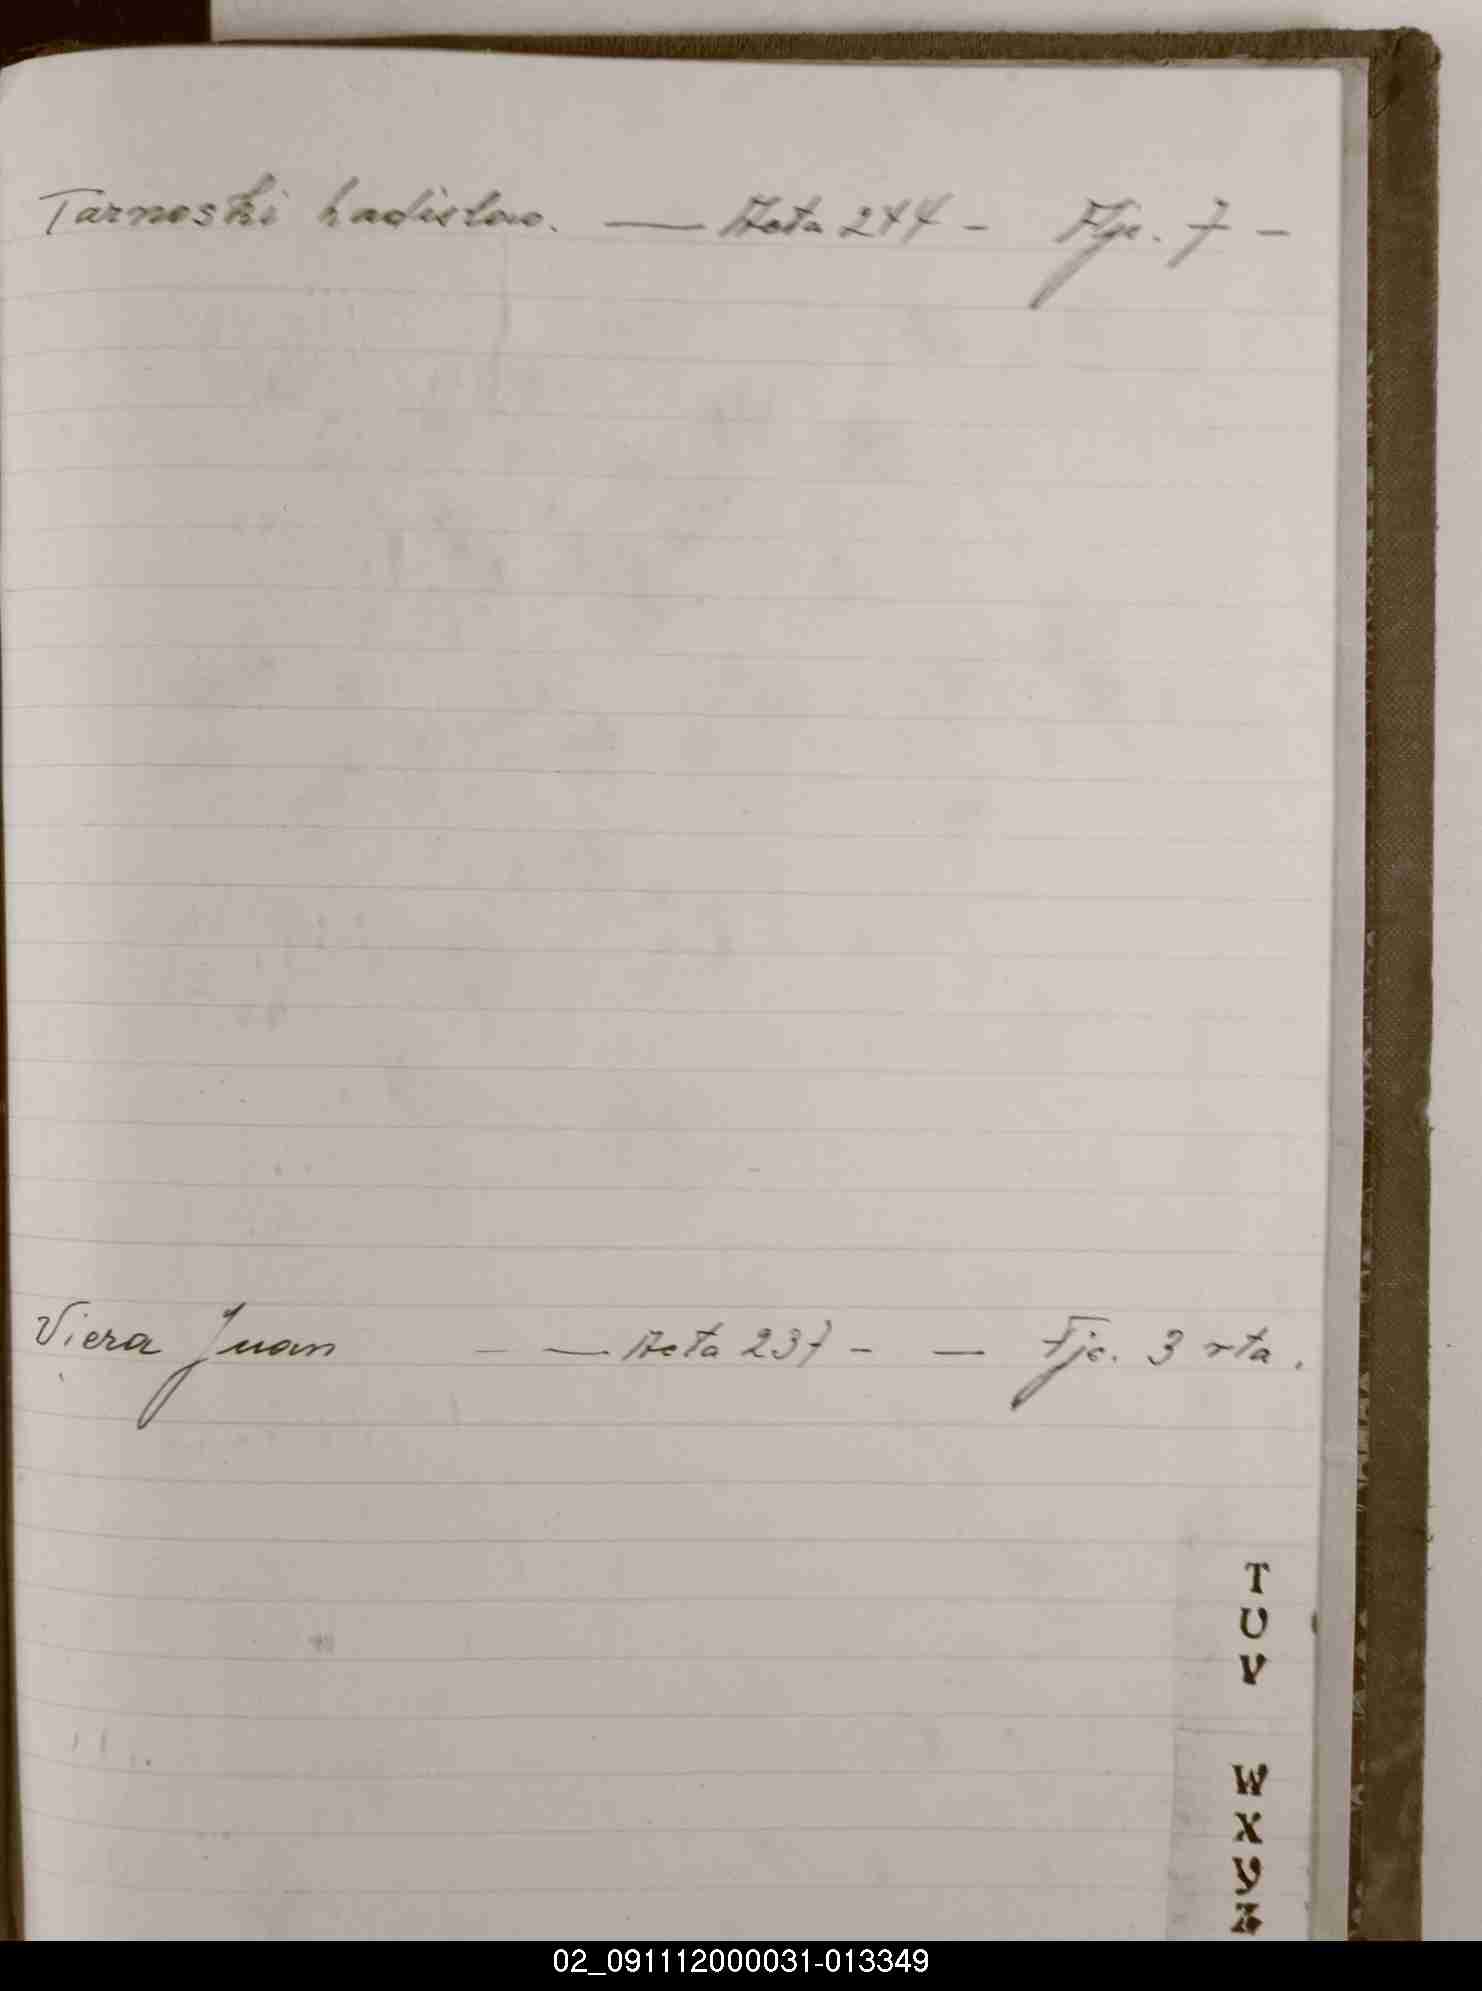 Tarnoski Ladislao. — Acta 244 - Fjo. 7 -
Viera Juan - — Acta 237 - — Fjo. 3 vta.
T
U
V
W
X
Y
Z
02_091112000031-013349